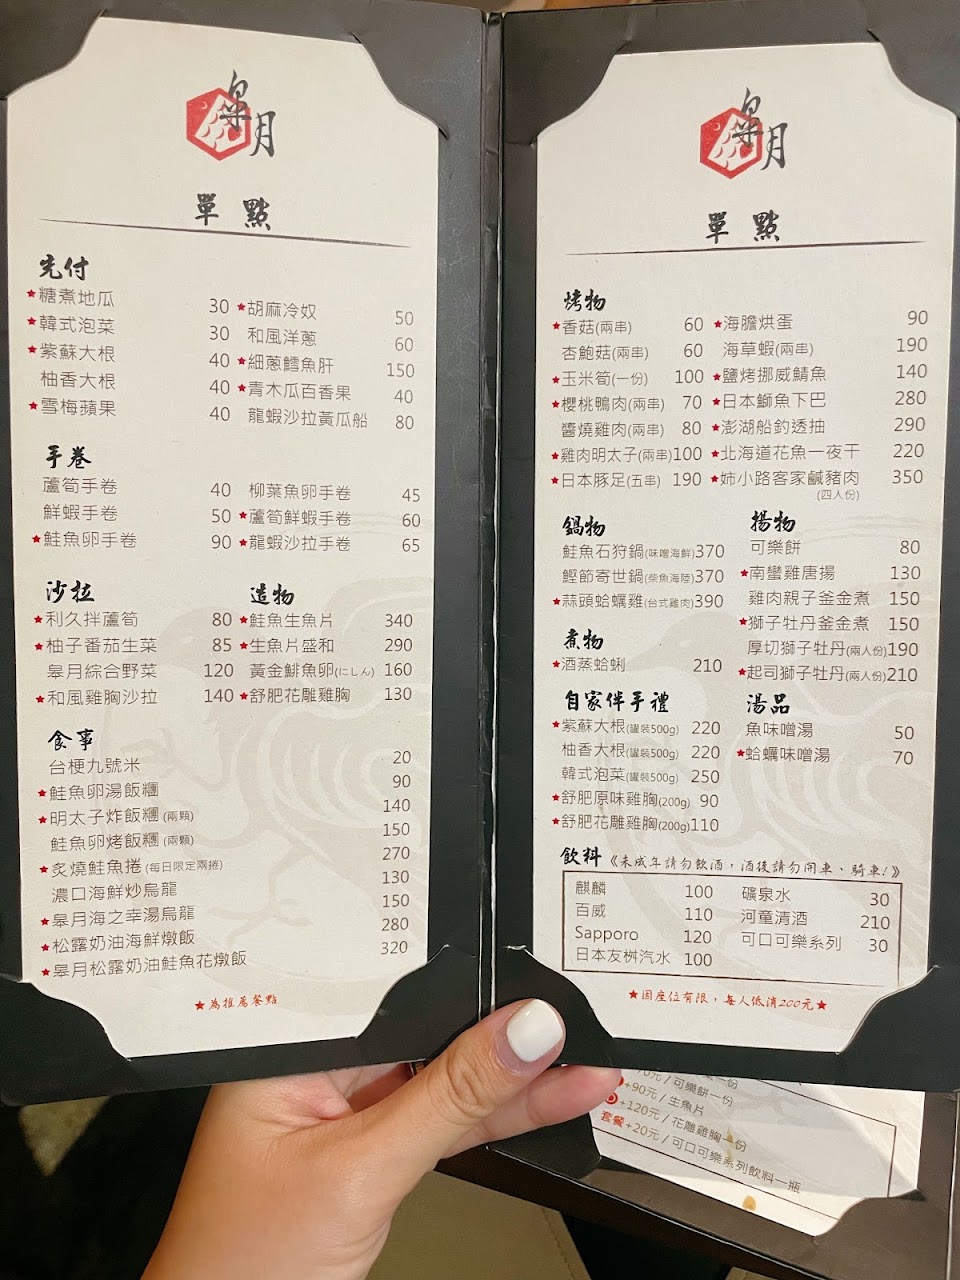 皐月
單點
先付
★糖煮地瓜 30
★韓式泡菜 30
★紫蘇大根 40
柚香大根 40
★雪梅蘋果 40
★胡麻冷奴 50
和風洋蔥 60
★細蔥鱈魚肝 150
★青木瓜百香果 40
龍蝦沙拉黃瓜船 80
手卷
蘆筍手卷 40
鮮蝦手卷 50
★鮭魚卵手卷 90
柳葉魚卵手卷 45
★蘆筍鮮蝦手卷 60
★龍蝦沙拉手卷 65
沙拉
★利久拌蘆筍 80
★柚子番茄生菜 85
皐月綜合野菜 120
★和風雞胸沙拉 140
造物
★鮭魚生魚片 340
★生魚片盛和 290
黃金鯡魚卵(にしん) 160
★舒肥花雕雞胸 130
食事
台梗九號米 20
★鮭魚卵湯飯糰 90
★明太子炸飯糰(兩顆) 140
鮭魚卵烤飯糰(兩顆) 150
★炙燒鮭魚捲(每日限定兩捲) 270
濃口海鮮炒烏龍 130
★皐月海之幸湯烏龍 150
★松露奶油海鮮燉飯 280
★皐月松露奶油鮭魚花燉飯 320
★為推薦餐點
皐月
單點
烤物
★香菇(兩串) 60
杏鮑菇(兩串) 60
★玉米筍(一份) 100
★櫻桃鴨肉(兩串) 70
醬燒雞肉(兩串) 80
★雞肉明太子(兩串)100
★日本豚足(五串) 190
★海膽烘蛋 90
海草蝦(兩串) 190
★鹽烤挪威鯖魚 140
★日本鰤魚下巴 280
★澎湖船釣透抽 290
★北海道花魚一夜干 220
★姉小路客家鹹豬肉 350
(四人份)
鍋物
鮭魚石狩鍋(味噌海鮮)370
鰹節寄世鍋(柴魚海陸)370
★蒜頭蛤蠣雞(台式雞肉)390
煮物
★酒蒸蛤蜊 210
揚物
可樂餅 80
★南蠻雞唐揚 130
雞肉親子釜金煮 150
★獅子牡丹釜金煮 150
厚切獅子牡丹(兩人份)190
★起司獅子牡丹(兩人份)210
自家伴手禮
★紫蘇大根(罐裝500g) 220
柚香大根(罐裝500g) 220
韓式泡菜(罐裝500g) 250
★舒肥原味雞胸(200g) 90
★舒肥花雕雞胸(200g)110
湯品
魚味噌湯 50
★蛤蠣味噌湯 70
飲料《未成年請勿飲酒，酒後請勿開車、騎車!》
麒麟 100
百威 110
Sapporo 120
日本友桝汽水 100
礦泉水 30
河童清酒 210
可口可樂系列 30
★因座位有限，每人低消200元★
70元 / 可樂餅一份
+90元 / 生魚片
+120元 / 花雕雞胸一份
套餐+20元 / 可口可樂系列飲料一瓶